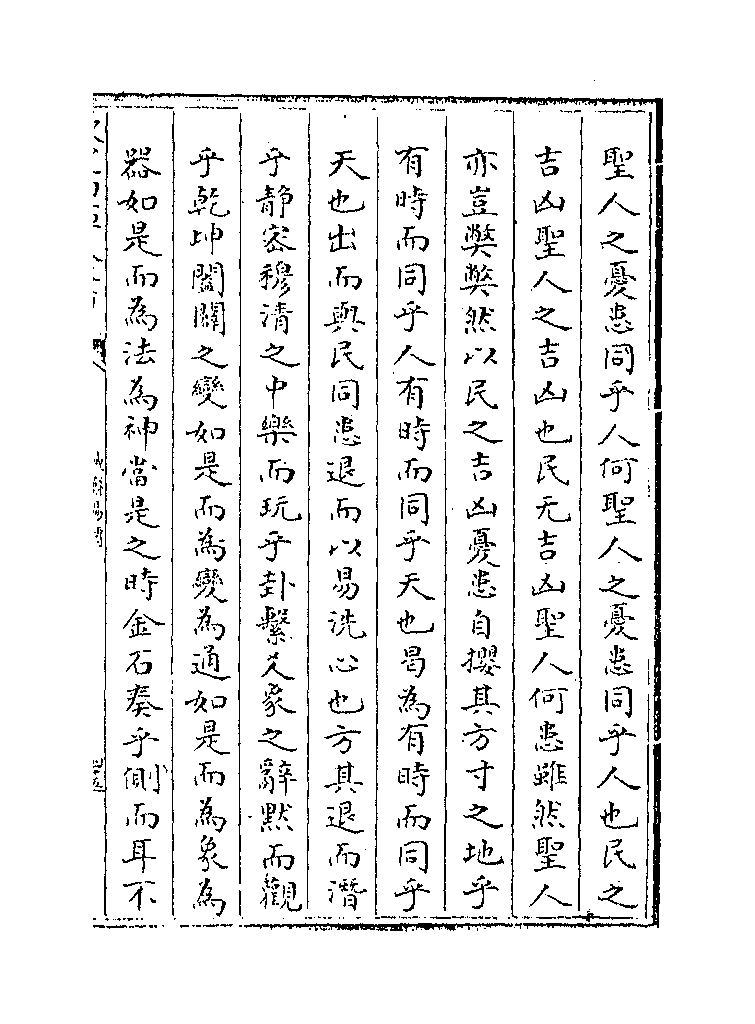 聖人之憂患同乎人何聖人之憂患同乎人也民之
吉凶聖人之吉凶也民无吉凶聖人何患雖然聖人
亦豈弊弊然以民之吉凶憂患自攖其方寸之地乎
有時而同乎人有時而同乎天也曷為有時而同乎
天也出而與民同患退而以易洗心也方其退而潛
乎静密穆清之中樂而玩乎卦繫爻象之辭黙而觀
乎乾坤闔闢之變如是而為變為通如是而為象為
器如是而為法為神當是之時金石奏乎側而耳不